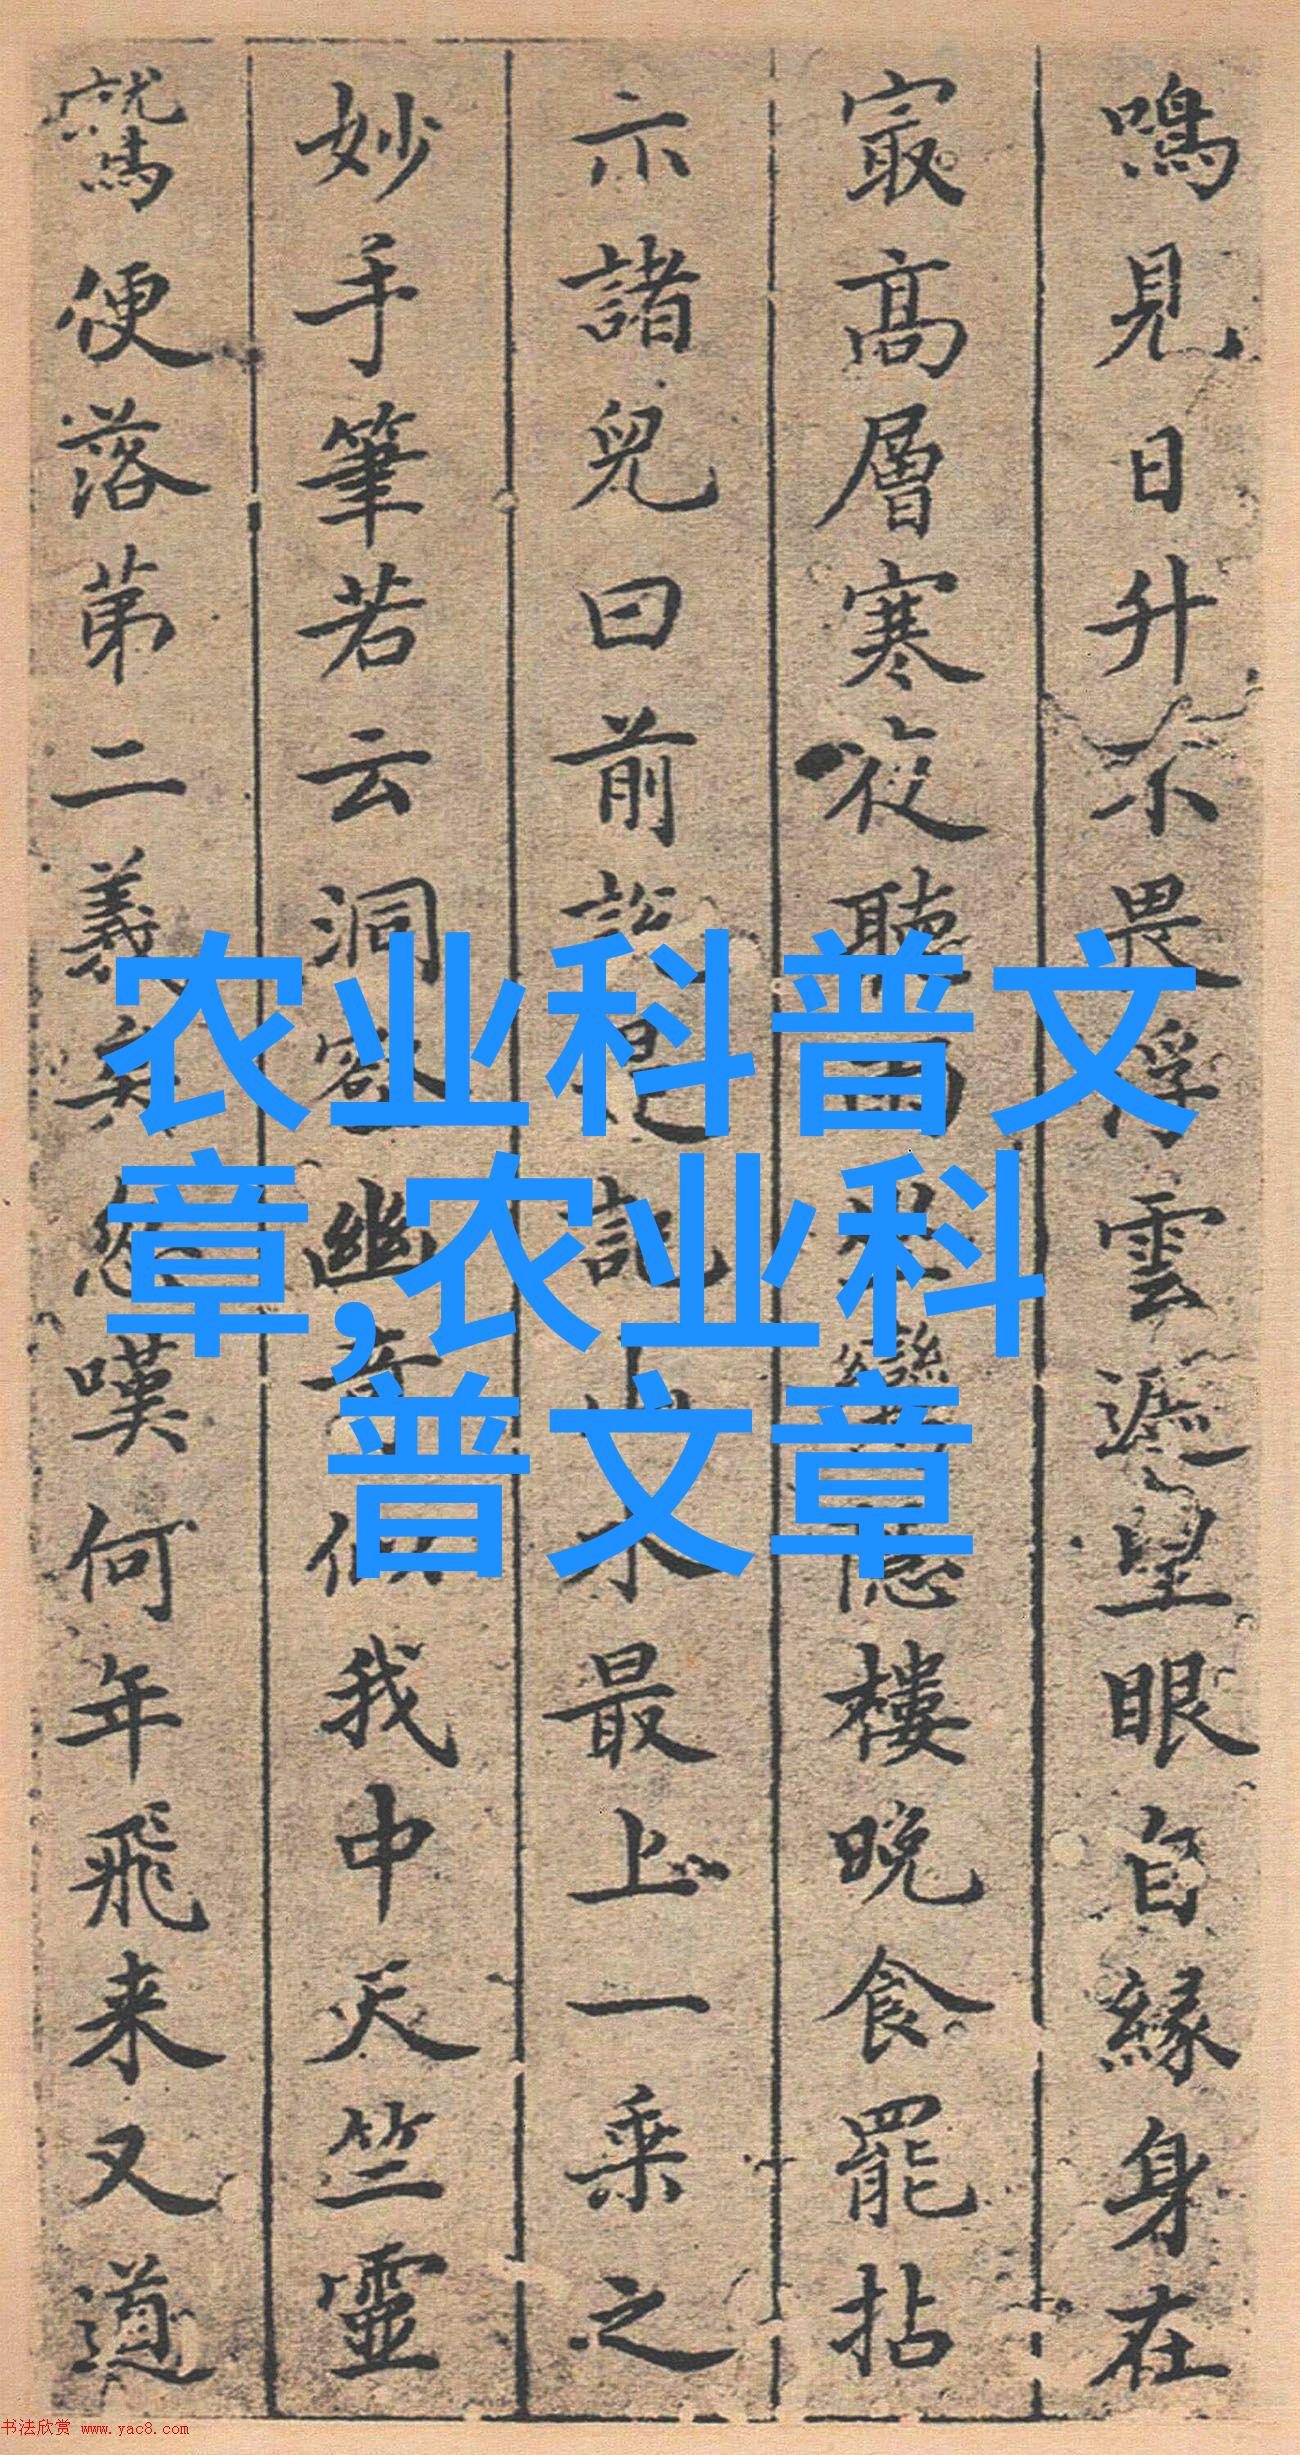 鳴見日升不畏浮雲遮望眼自緣身在
㝡高層寒夜聽隱樓晚食罷拈
示諸兒曰前記水最上一乘之
妙手筆若云洞壑幽奇似我中天竺靈
鷲便落第二義矣忽嘆何年飛来又道
农业科普文
章,农业科
普文章
书法欣赏 www.yac8.com